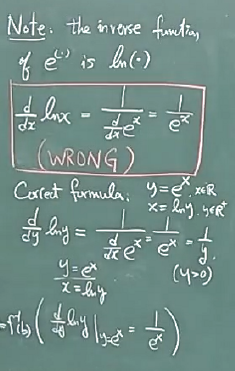 Note: the inverse function
of e^(·) is ln(·)
d/dx lnx = 1/(d/dx e^x) = 1/e^x
(WRONG)
Correct formula: y=e^x, x∈R
x=lny, y∈R^+
d/dy lny = 1/(d/dx e^x) = 1/e^x = 1/y
y=e^x
x=lny
(y>0)
(d/dy lny |y=e^x = 1/e^x)